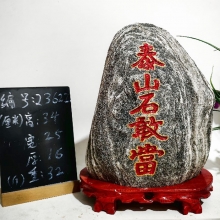 編号23622
(厘米)高:34
寬25
底:16
(斤)重:32
泰山石敢當